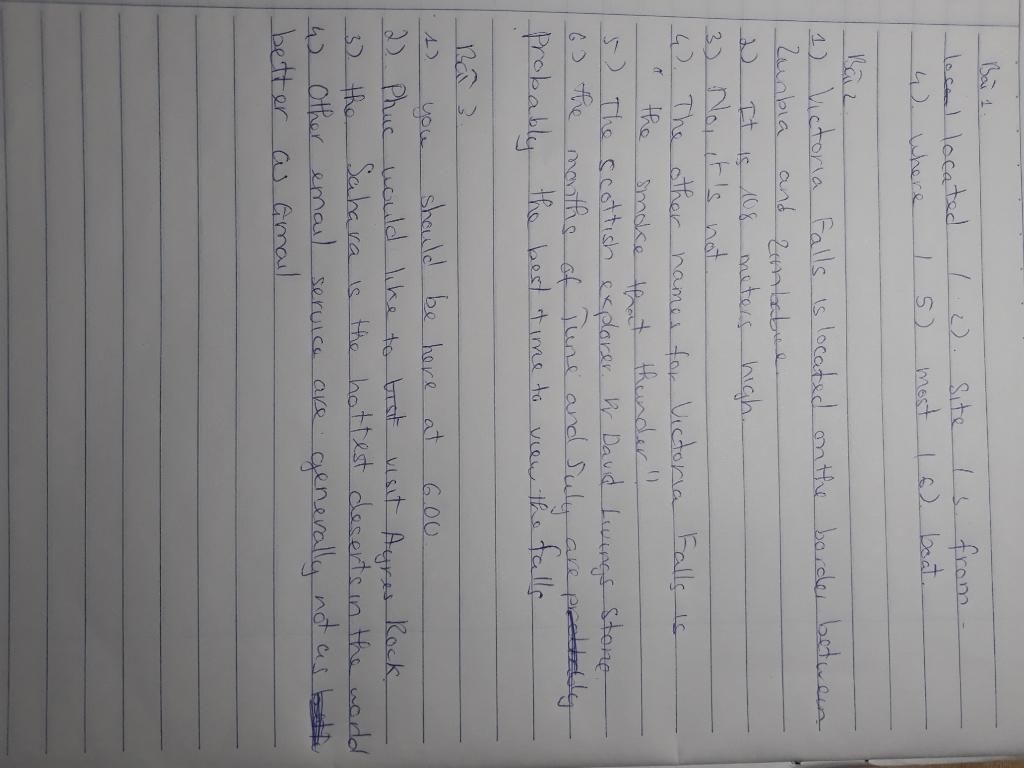 Bài 1.
located / 2). Site / 3 from -
4) where / 5) most / 6). boat.
Bài 2.
1) Victoria Falls is located on the border between
Zambia and Zimbabwe.
2) It is 108 meters high.
3) No, it's not.
4). The other names for Victoria Falls is
" the smoke that thunder"
5) The scottish explorer Dr David Livings stone.
6) the months of June and July are
probably the best time to view the falls
Bài 3.
1) you should be here at 6.00.
2). Phuc would like to visit Ayres Rock.
3) the Sahara is the hottest deserts in the world
4) Other email service are generally not as
better as Gmail